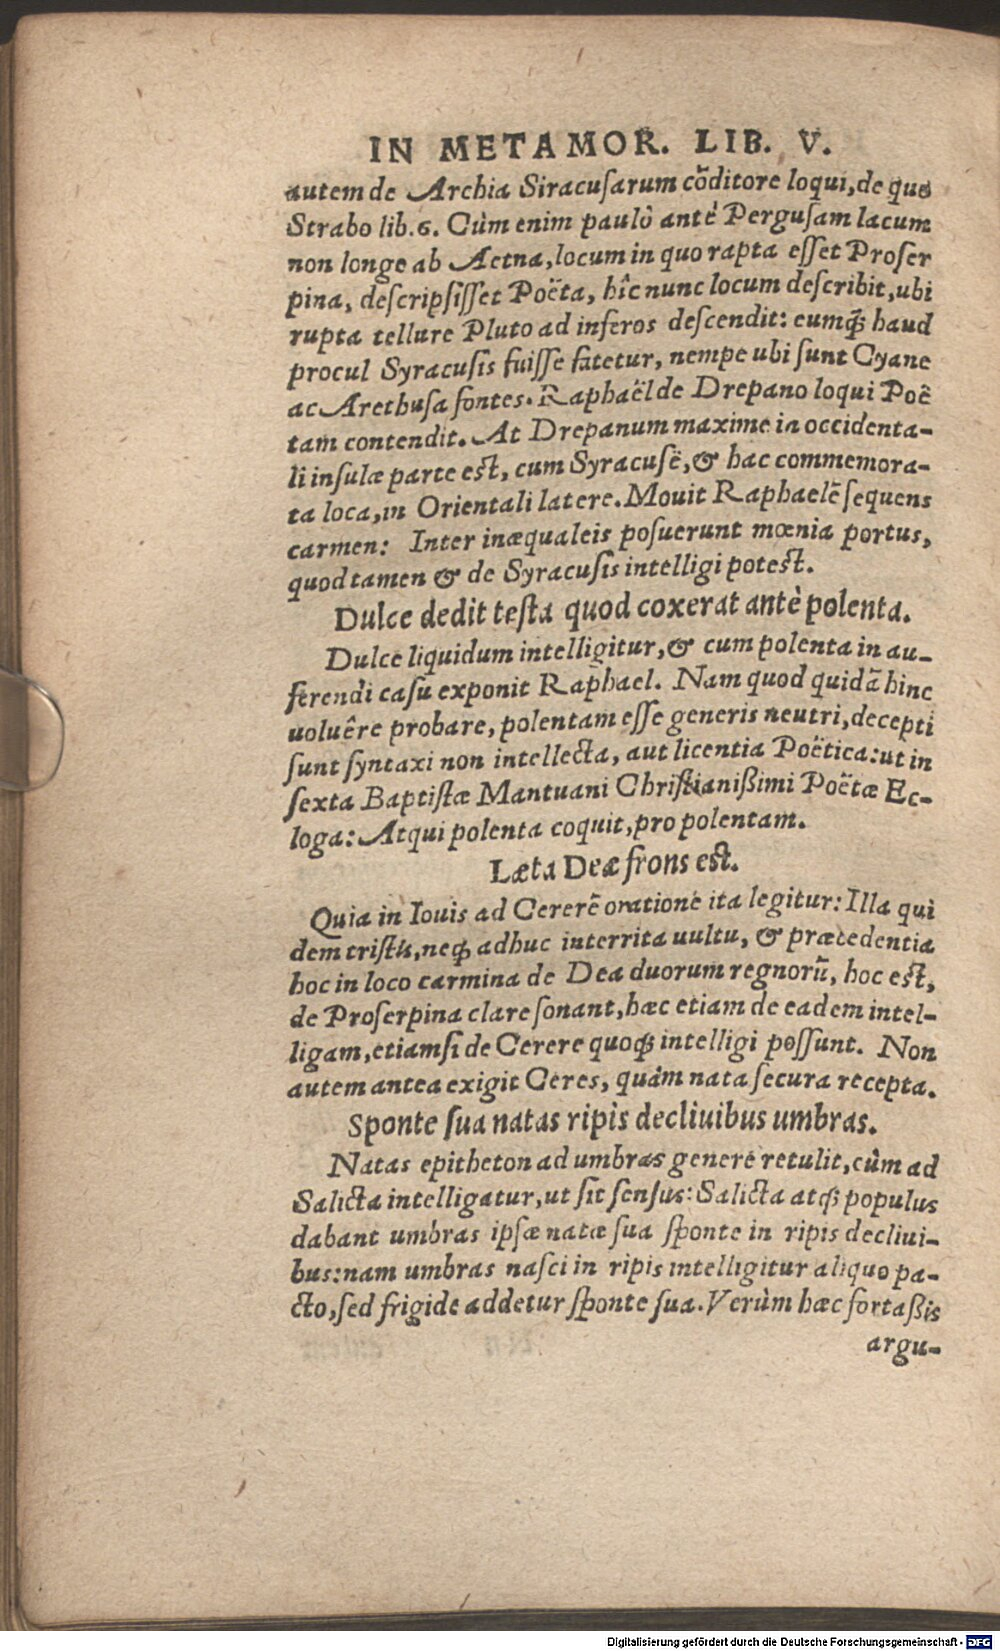 IN METAMOR. LIB. V.
autem de Archia Siracusarum cõditore loqui, de quo
Strabo lib. 6. Cùm enim paulò antè Pergusam lacum
non longe ab Aetna, locum in quo rapta esset Proser
pina, descripsisset Poëta, hîc nunc locum describit, ubi
rupta tellure Pluto ad inferos descendit: eumq́; haud
procul Syracusis fuisse fatetur, nempe ubi sunt Cyane
ac Arethusa fontes. Raphaël de Drepano loqui Poë
tam contendit. At Drepanum maxime in occidenta-
li insulæ parte est, cum Syracusē, & hac commemora-
ta loca, in Orientali latere. Mouit Raphaelē sequens
carmen: Inter inæqualeis posuerunt mœnia portus,
quod tamen & de Syracusis intelligi potest.
Dulce dedit testa quod coxerat antè polenta.
Dulce liquidum intelligitur, & cum polenta in au-
ferendi casu exponit Raphael. Nam quod quidã hinc
uoluêre probare, polentam esse generis neutri, decepti
sunt syntaxi non intellecta, aut licentia Poëtica: ut in
sexta Baptistæ Mantuani Christianißimi Poëtæ Ec-
loga: Atqui polenta coquit, pro polentam.
Læta Deæ frons est.
Quia in Iouis ad Cererē oratione ita legitur: Illa qui
dem tristis, neq́; adhuc interrita uultu, & præcedentia
hoc in loco carmina de Dea duorum regnorũ, hoc est,
de Proserpina clare sonant, hæc etiam de eadem intel-
ligam, etiamsi de Cerere quoq́; intelligi possunt. Non
autem antea exigit Ceres, quàm nata secura recepta.
Sponte sua natas ripis decliuibus umbras.
Natas epitheton ad umbras genere retulit, cùm ad
Salicta intelligatur, ut sit sensus: Salicta atq́; populus
dabant umbras ipsæ natæ sua sponte in ripis decliui-
bus: nam umbras nasci in ripis intelligitur aliquo pa-
cto, sed frigide addetur sponte sua. Verùm hæc fortaßis
argu-
Digitalisierung gefördert durch die Deutsche Forschungsgemeinschaft - DFG